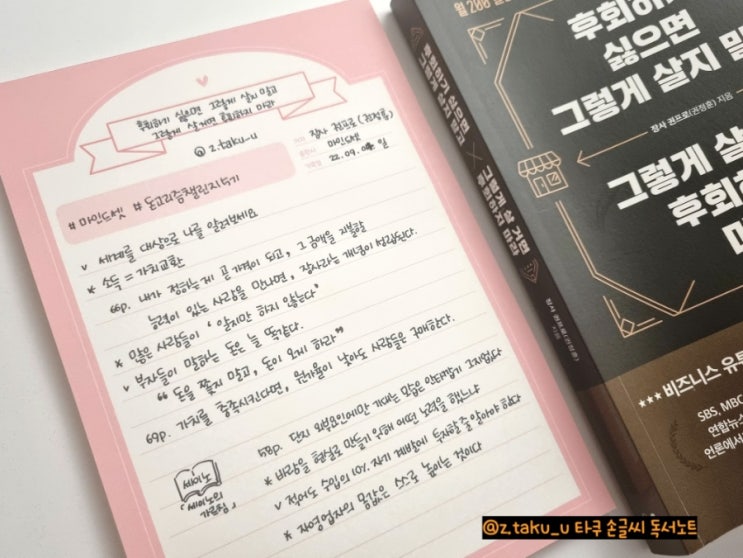 후회하기 싫으면 그렇게 살지 말고
그렇게 살 거면 후회하지 마라
@ z.taku_u
장사 권프로(권정훈)
마인드셋
22.09.04 일
# 마인드셋 # 돈고리즘챌린지5기
v 세계를 대상으로 나를 알려보세요
* 소득 = 가치교환
66p. 내가 정하는 게 곧 가격이 되고, 그 금액을 지불할
능력이 있는 사람을 만나면, 장사라는 개념이 성립된다.
* 많은 사람들이 '알지만 하지 않는다'
v 부자들이 말하는 돈은 늘 똑같다.
"돈을 쫓지 말고, 돈이 오게 하라"
69p. 가치를 충족시킨다면, 원가율이 낮아도 사람들은 구매한다.
58p. 단지 외부요인에만 기대는 모습은 안타깝기 그지없었다
* 바람을 현실로 만들기 위해 어떤 노력을 했느냐
v 적어도 수입의 10% 자기 계발에 투자할 줄 알아야 한다
* 자영업자의 몸값은 스스로 높이는 것이다
세이노
「세이노의
가르침」
후회하기 싫으면 그렇게 살지 말고
그렇게 살 거면 후회하지 마라
장사 권프로(권정훈) 지음
월 200
후회하기
싫으면
그렇게 살지 말
장사 권프로(권정훈) 지음
그렇게 살
후회하
마
★★★ 비즈니스 유튜
SBS, MBC
연합뉴스
언론에서
@z.taku_u 타쿠 손글씨 독서노트